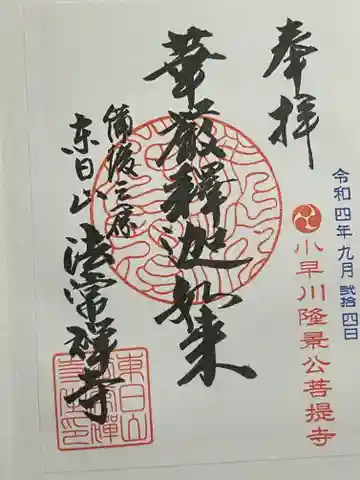 奉拝
令和四年九月弐拾四日
小早川隆景公菩提寺
華厳釋迦如来
備後三原
東日山
法常禅寺